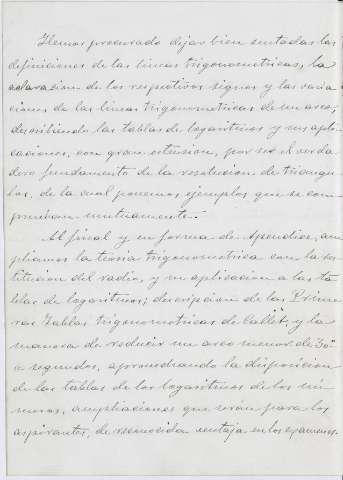 Hemos procurado dejar bien sentadas las
definiciones de las líneas trigonometricas, la
aclaracion de los respectivos signos y las varia
ciones de las líneas trigonometricas de un arco;
describiendo las tablas de logaritmos y sus apli-
caciones, con gran extension, por ser el verda
dero fundamento de la resolucion de triangu-
los, de la cual ponemos ejemplos que se com-
prueban mutuamente.-
Al final y en forma de Apendice, am
pliamos la teoria trigonometrica con la sus-
titucion del radio, y su aplicacion a las ta
blas de logaritmos; descripcion de las Prime
ras Tablas trigonometricas de Callet, y la
manera de reducir un arco menor de 30º
a segundos, aprovechando la disposicion
de las tablas de los logaritmos de los nú
meros, ampliaciones que serán para los
aspirantes, de reconocida ventaja en los examenes.